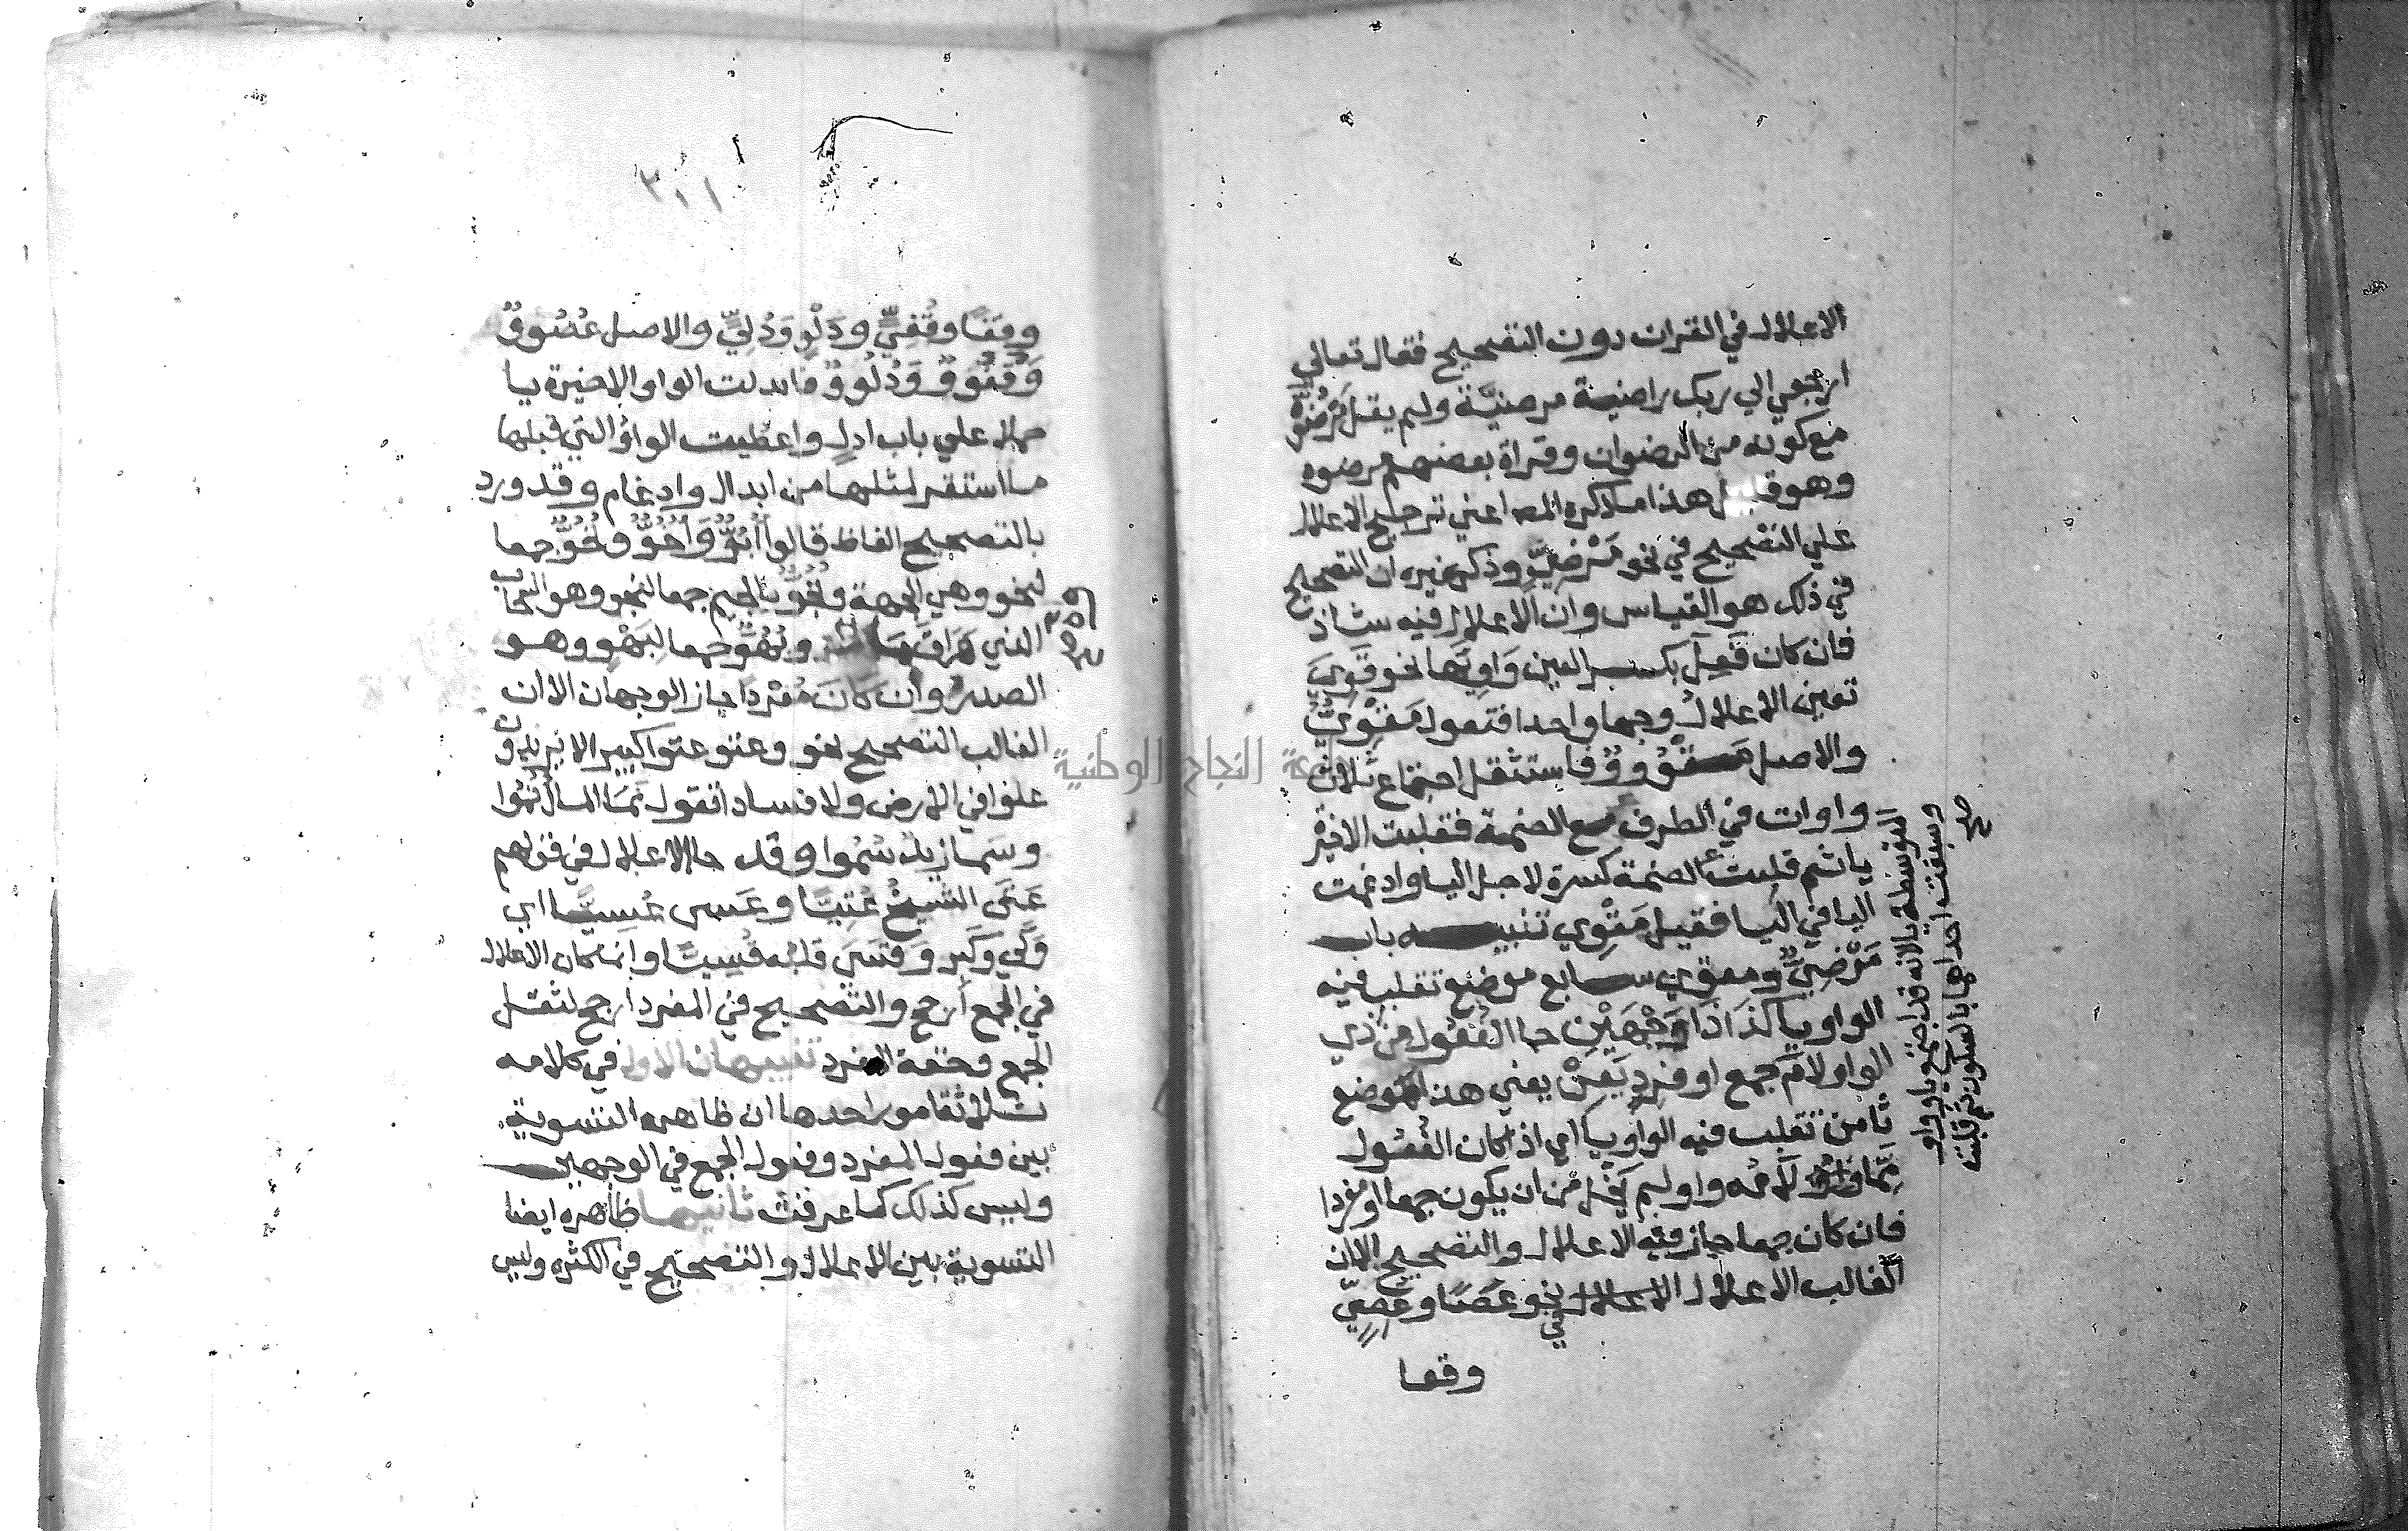 الاعلال في القران دون التصحيح فقال تعالي
ارجعي الي ربك راضية مرضيّة ولم يقل مَرْضُوَّة
مع كونه من الرضوان وقراة بعضهم مرضوه
وهو قليل هذا ما ذكره المص اعني ترجيح الاعلال
علي التصحيح في نحو مَرْضِيٍّ وذكر غيره ان التصحيح
في ذلك هو القياس وان الاعلال فيه شاذ
فان كان فَعِلَ بكسر العين وَاوِيَّها نحو قَوِيَ
تعين الاعلال وجها واحدا فتقول مَقْوِيٌّ
والاصل مقْوُووٌ فاستثقل اجتماع ثلاث
واوات في الطرف مع الضمة فقلبت الاخيرة
يا ثم قلبت الضمة كسرة لاجل اليا وادغمت
اليا في اليا فقيل مَقْوِي تنبيه باب
مَرْضِيٍّ ومقوي سابع موضع تقلب فيه
الواو يا كذَاكَ ذَا وَجْهَيْنِ جا الفُعُول مِنْ ذي
الواو لامَ جمع او فردٍ يَعِنْ يعني هذا موضع
ثامن تقلب فيه الواو يا اي اذا كان الفُعُول
مِمَّا لَامُه واو لم يَخْل من ان يكون جمعا او مفردا
فان كان جمعا جاز فيه الاعلال والتصحيح الا ان
الغالب الاعلال الاعلال نحو عَصًا وعُصِيّ
وقفا
المتوسطة يا لانه قد اجتمع يا وواو
وسبقت احداهما بالسكون ثم قلبت
صح
٣٠١
وقفًا وقُفِيٍّ ودَلْو ودُلِيٍّ والاصل عُصُووٌ
وَقُفُووٌ وَدُلُووٌ فابدلت الواو الاخيرة يا
حملا علي باب ادلٍ واعطيت الواو التي قبلها
ما استقر لمثلها من ابدال وادغام وقد ورد
بالتصحيح الفاظ قالوا أُبُوٌّ وَأُخُوٌّ ونُحُوٌّ جمعا
لنحو وهي الجهة ونُجُوٌّ بالجيم جمعا لنجو وهو السحاب
الذي هَرَاقَ مَاءه وبُهُوٌّ جمعا لبَهْوٍ وهو
الصدر وان كَانَ مُفْردا جاز الوجهان الا ان
الغالب التصحيح نحو وعتو عتوا كبيرا لا يريدون
علوا في الارض ولا فسادا تقول نَمَا المال نُمُوًّا
وسَما زيد سُمُوا وقد جا الاعلال في قولهم
عَتَى الشيخُ عُتِيًّا وعَسى عُسِيًّا اي
وَلَّي وكَبِرَ وَقَسَىَ قلبُه قُسِيًّا وانما كان الاعلال
في الجمع أرجح والتصحيح في المفرد ارجح لثقل
الجمع وخفة المفرد تنبيهان الاول في كلامه
ثلاثة امور احدها ان ظاهره التسوية
بين فعول المفرد وفعول الجمع في الوجهين
وليس كذلك كما عرفت ثانيها ظاهره ايضا
التسوية بين الاعلال والتصحيح في الكثره وليس
جامعة النجاح الوطنية